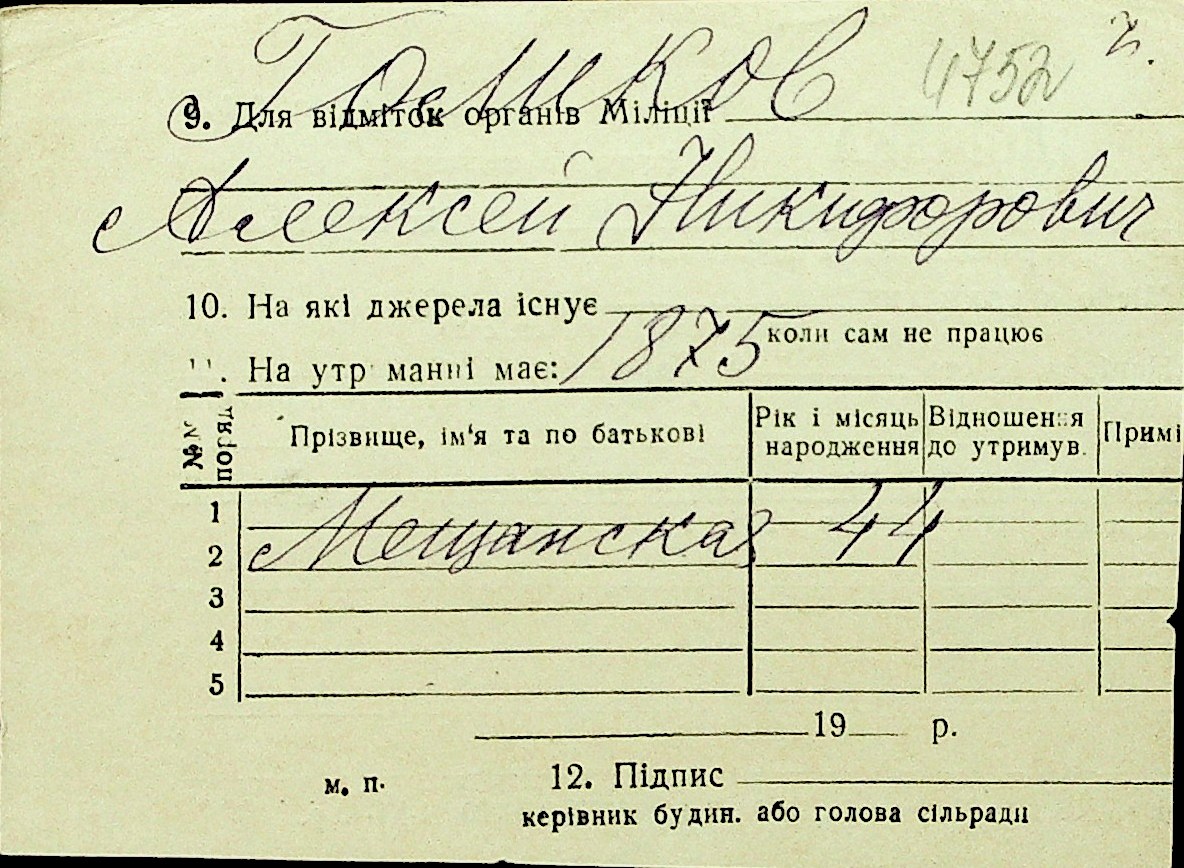 Томков 4752 7.
9. Для відміток органів Міліції
Алексей Никифорович
10. На які джерела існує
коли сам не працює
11. На утр манні має: 1875
№№ поряд Прізвище, ім'я та по батькові Рік і місяць народження Відношення до утримув. Примі
1
2 Мещанская 44
3
4
5
19 р.
м. п. 12. Підпис
керівник будин. або голова сільради